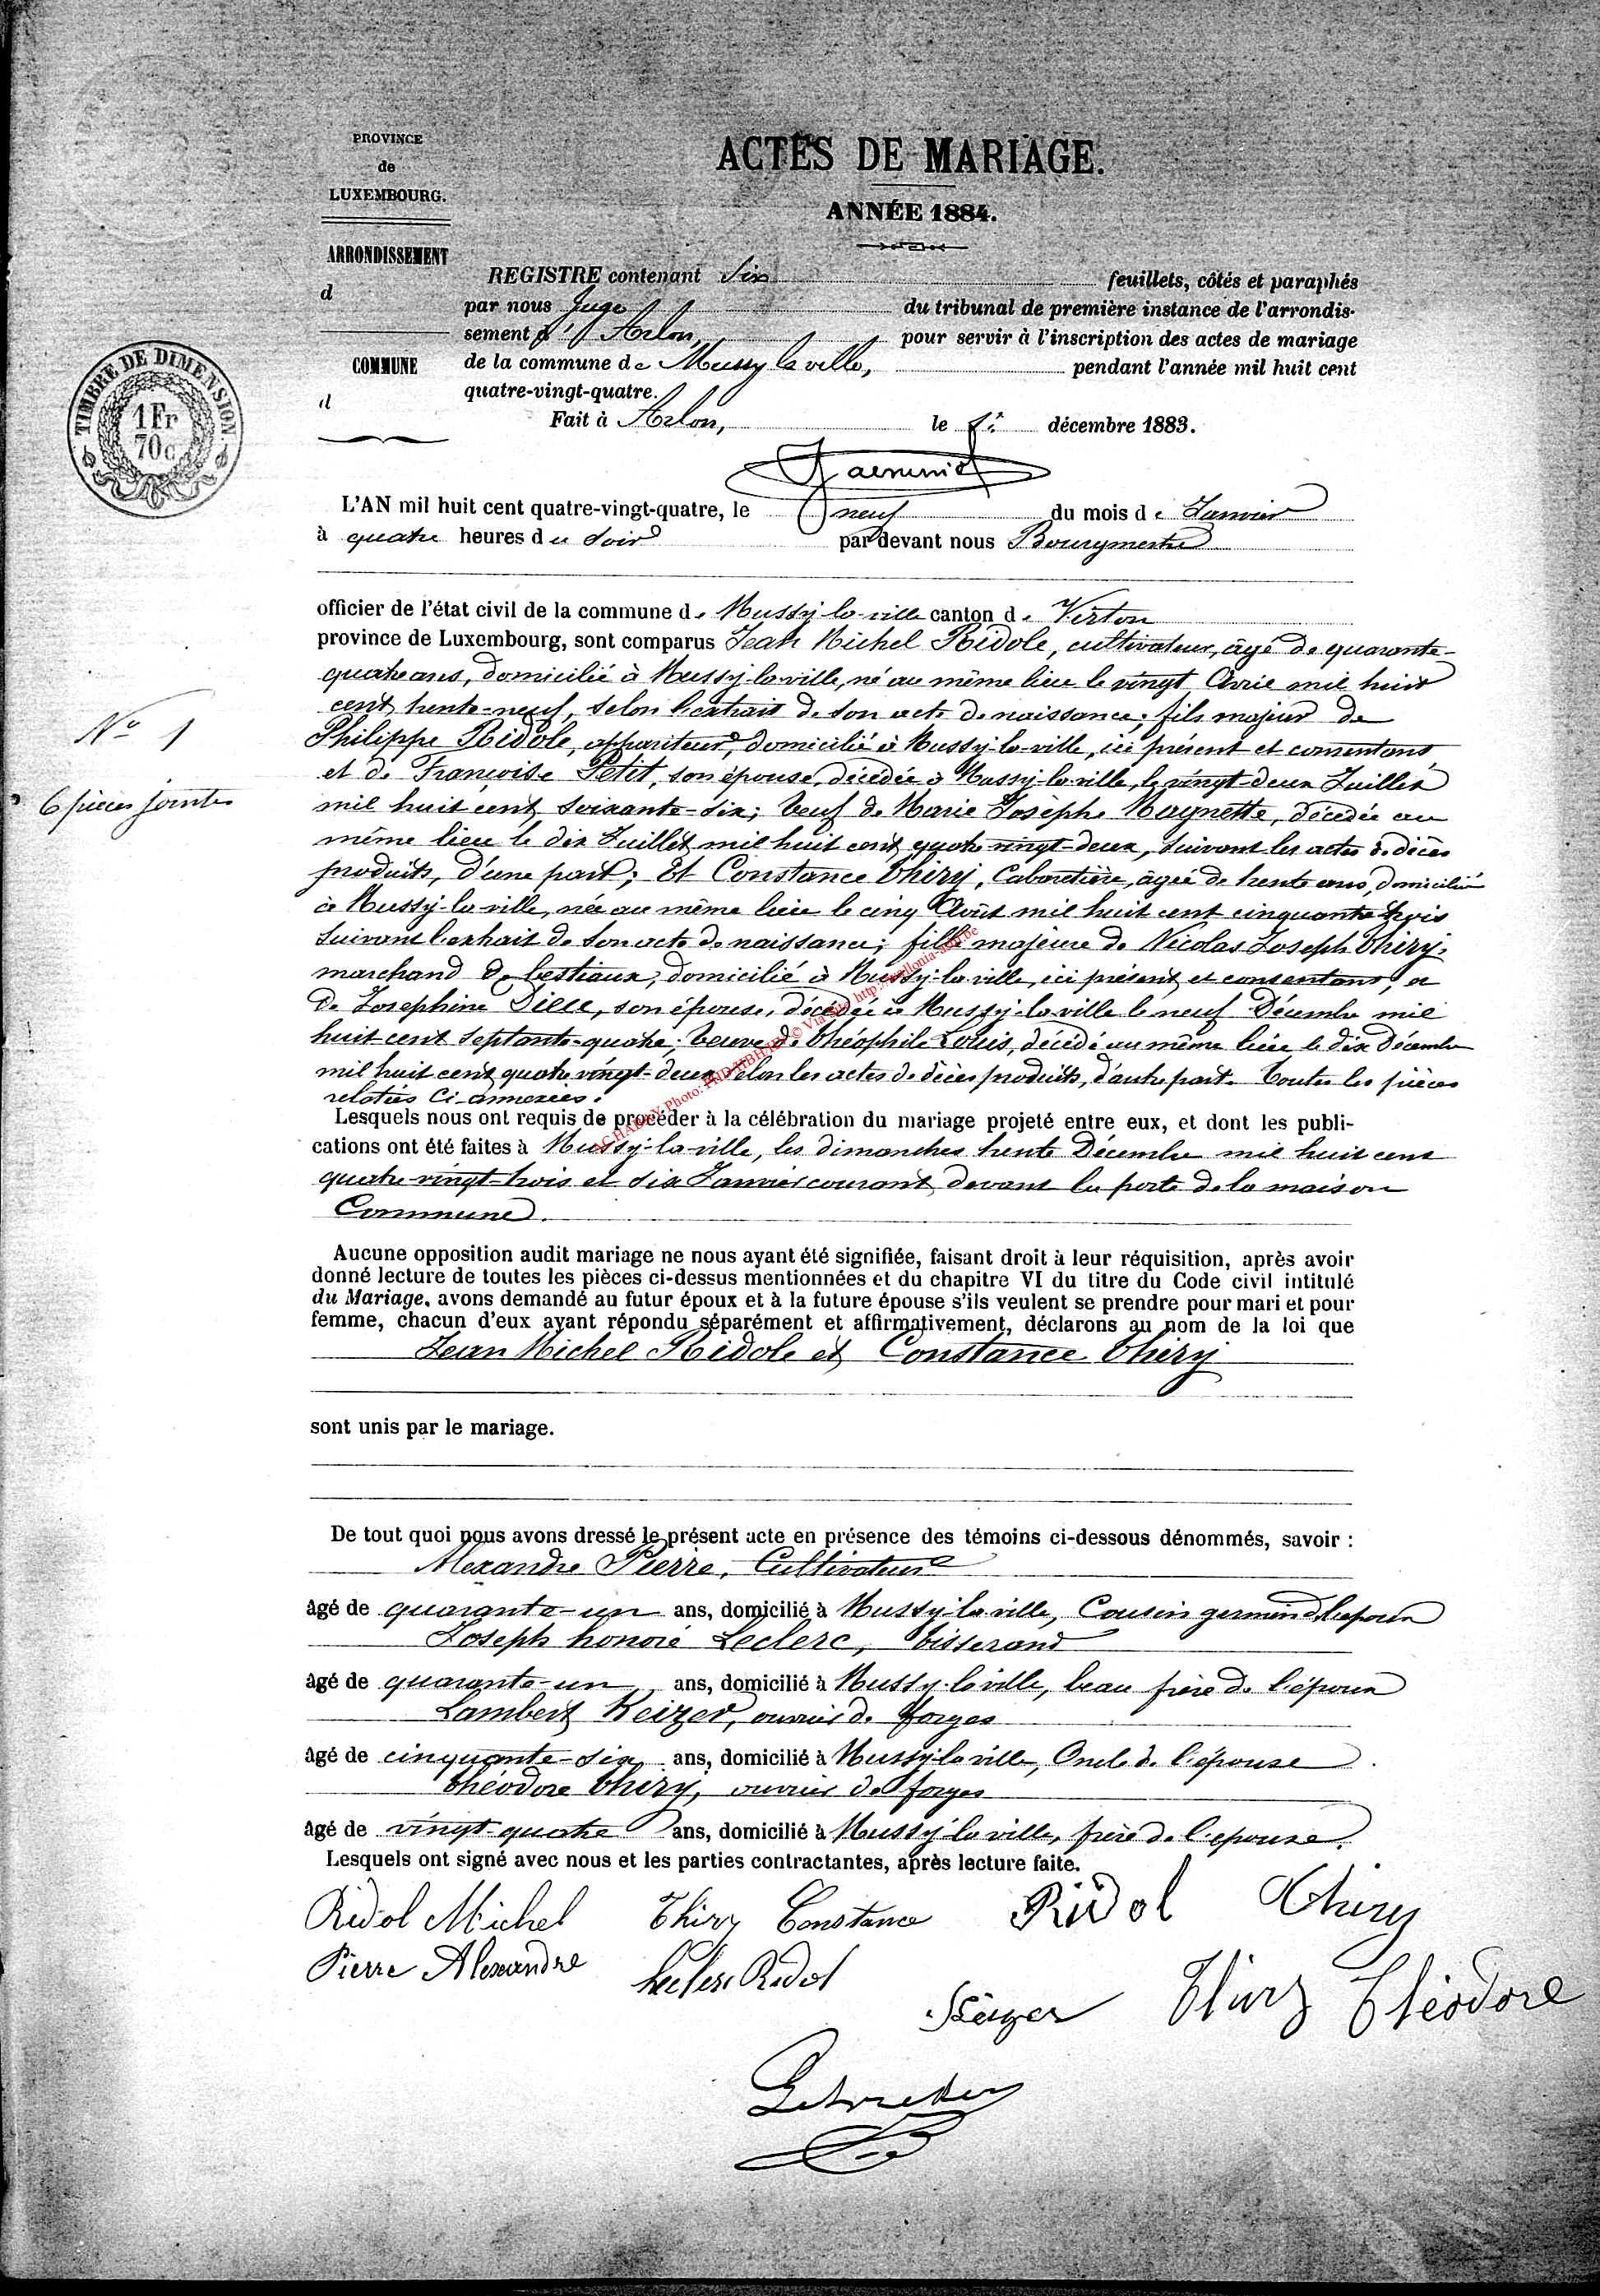 PROVINCE
de
LUXEMBOURG.
ARRONDISSEMENT
d
COMMUNE
d
TIMBRE DE DIMENSION
1 Fr
70 c
ACTES DE MARIAGE.
ANNÉE 1884.
REGISTRE contenant Six feuillets, côtés et paraphés
par nous Juge du tribunal de première instance de l'arrondis-
sement d'Arlon, pour servir à l'inscription des actes de mariage
de la commune de Mussy la ville, pendant l'année mil huit cent
quatre-vingt-quatre.
Fait à Arlon, le décembre 1883.
L'AN mil huit cent quatre-vingt-quatre, le neuf du mois de Janvier
à quatre heures du Soir par devant nous Bourgmestre
officier de l'état civil de la commune de Mussy-la-ville canton de Virton
province de Luxembourg, sont comparus Jean Michel Ridole, cultivateur, âgé de quarante-
quatre ans, domicilié à Mussy-la-ville, né au même lieu le vingt Avril mil huit
cent trente-neuf, selon l'extrait de son acte de naissance; fils majeur de
Philippe Ridole, appariteur, domicilié à Mussy-la-ville, ici présent et consentant
et de Françoise Petit, son épouse, décédée à Mussy-la-ville, le vingt-deux Juillet
mil huit cent soixante-six; Veuf de Marie Josèphe Maynette, décédée au
même lieu le dix Juillet mil huit cent quatre vingt-deux, suivant les actes de décès
produits, d'une part; Et Constance Thiry, Cabaretière, âgée de trente ans, domiciliée
à Mussy-la-ville, née au même lieu le cinq Août mil huit cent cinquante trois
suivant l'extrait de son acte de naissance; fille majeure de Nicolas Joseph Thiry,
marchand de bestiaux, domicilié à Mussy-la-ville, ici présent et consentant, et
de Josephine Dille, son épouse, décédée à Mussy-la-ville le neuf Décembre mil
huit cent septante-quatre; Veuve de Théophile Louis, décédé au même lieu le dix Décembre
mil huit cent quatre vingt-deux, selon les actes de décès produits, d'autre part. Toutes les pièces
relatées ci-annexées.
Lesquels nous ont requis de procéder à la célébration du mariage projeté entre eux, et dont les publi-
cations ont été faites à Mussy-la-ville, les dimanches trente Décembre mil huit cent
quatre vingt-trois et six Janvier courant, devant la porte de la maison
Commune.
Aucune opposition audit mariage ne nous ayant été signifiée, faisant droit à leur réquisition, après avoir
donné lecture de toutes les pièces ci-dessus mentionnées et du chapitre VI du titre du Code civil intitulé
du Mariage, avons demandé au futur époux et à la future épouse s'ils veulent se prendre pour mari et pour
femme, chacun d'eux ayant répondu séparément et affirmativement, déclarons au nom de la loi que
Jean Michel Ridole et Constance Thiry
sont unis par le mariage.
De tout quoi nous avons dressé le présent acte en présence des témoins ci-dessous dénommés, savoir :
Alexandre Pierre, Cultivateur
âgé de quarante-un ans, domicilié à Mussy-la-ville, Cousin germain de l'époux
Joseph honoré Leclerc, tisserand
âgé de quarante-un ans, domicilié à Mussy-la-ville, beau frère de l'époux
Lambert Keizer, ouvrier de forges
âgé de cinquante-six ans, domicilié à Mussy-la-ville, Oncle de l'épouse
Théodore Thiry, ouvrier de forges
âgé de vingt-quatre ans, domicilié à Mussy-la ville, frère de l'épouse.
Lesquels ont signé avec nous et les parties contractantes, après lecture faite.
Ridol Michel Thiry Constance Ridol Thiry
Pierre Alexandre Leclerc Ridol
Keizer Thiry Théodore
No 1
6 pièces jointes